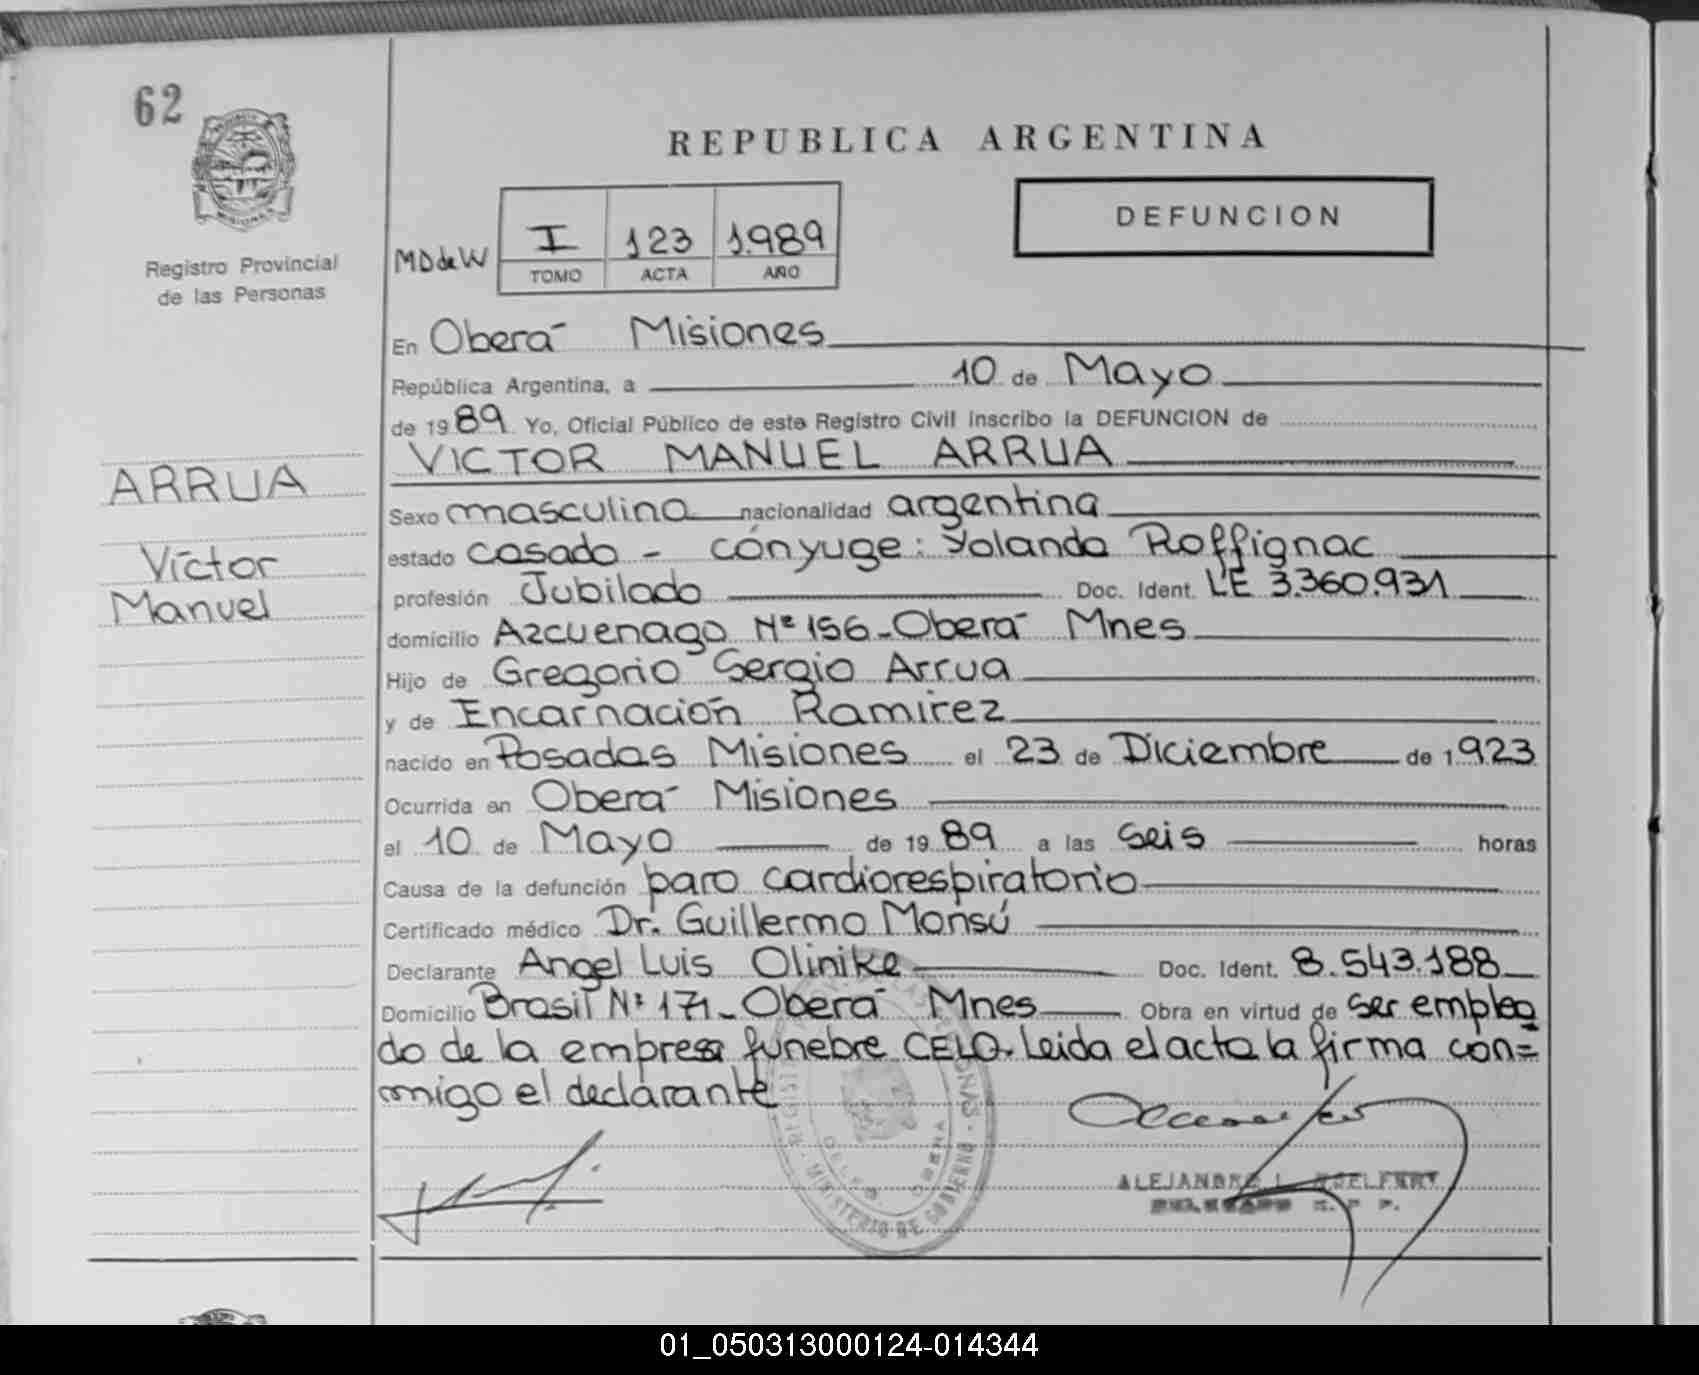 62
REPUBLICA ARGENTINA
DEFUNCION
MISIONES
Registro Provincial
de las Personas
MDdeW I 123 1.989
TOMO ACTA AÑO
En Oberá Misiones
República Argentina, a 10 de Mayo
de 1989 Yo, Oficial Público de este Registro Civil inscribo la DEFUNCION de
VICTOR MANUEL ARRUA
ARRUA
Víctor
Manuel
Sexo masculino nacionalidad argentina
estado casado - cónyuge: Yolanda Roffignac
profesión Jubilado Doc. Ident. LE 3.360.931
domicilio Azcuenago Nº 156-Oberá Mnes
Hijo de Gregorio Sergio Arrua
y de Encarnación Ramirez
nacido en Posadas Misiones el 23 de Diciembre de 1.923
Ocurrida en Oberá Misiones
el 10 de Mayo de 1989 a las seis horas
Causa de la defunción paro cardiorespiratorio
Certificado médico Dr. Guillermo Monsú
Declarante Angel Luis Olinike Doc. Ident. 8.543.188
Domicilio Brasil Nº 171-Oberá Mnes Obra en virtud de ser emplea
do de la empresa fúnebre CELO. Leida el acta la firma con=
migo el declarante
MINISTERIO DE GOBIERNO
ALEJANDRO
01_050313000124-014344